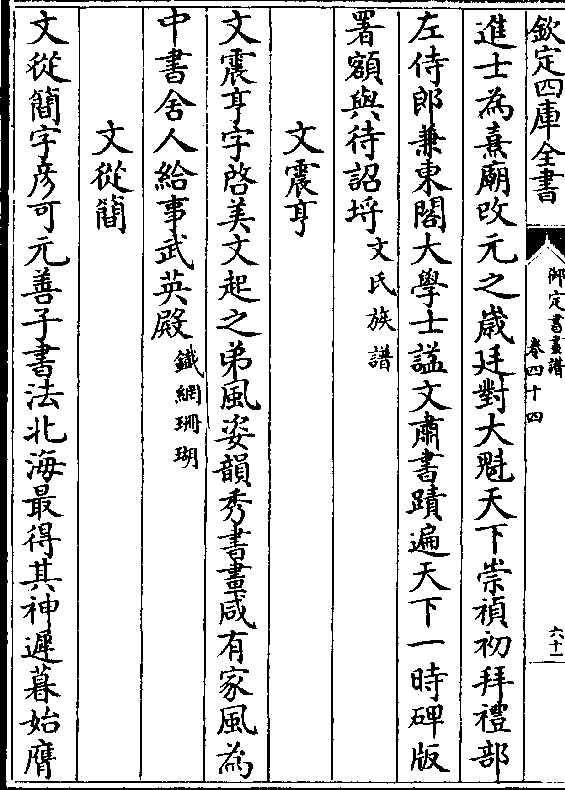 欽定四庫全書
御定書畫譜
卷四十四
六十一
進士為熹廟改元之歲廷對大魁天下崇禎初拜禮部
左侍郎兼東閣大學士諡文肅書蹟遍天下一時碑版
署額與待詔埒文氏族譜
文震亨
文震亨字啓美文起之弟風姿韻秀書畫咸有家風為
中書舍人給事武英殿鐵網珊瑚
文從簡
文從簡字彥可元善子書法北海最得其神遲暮始膺